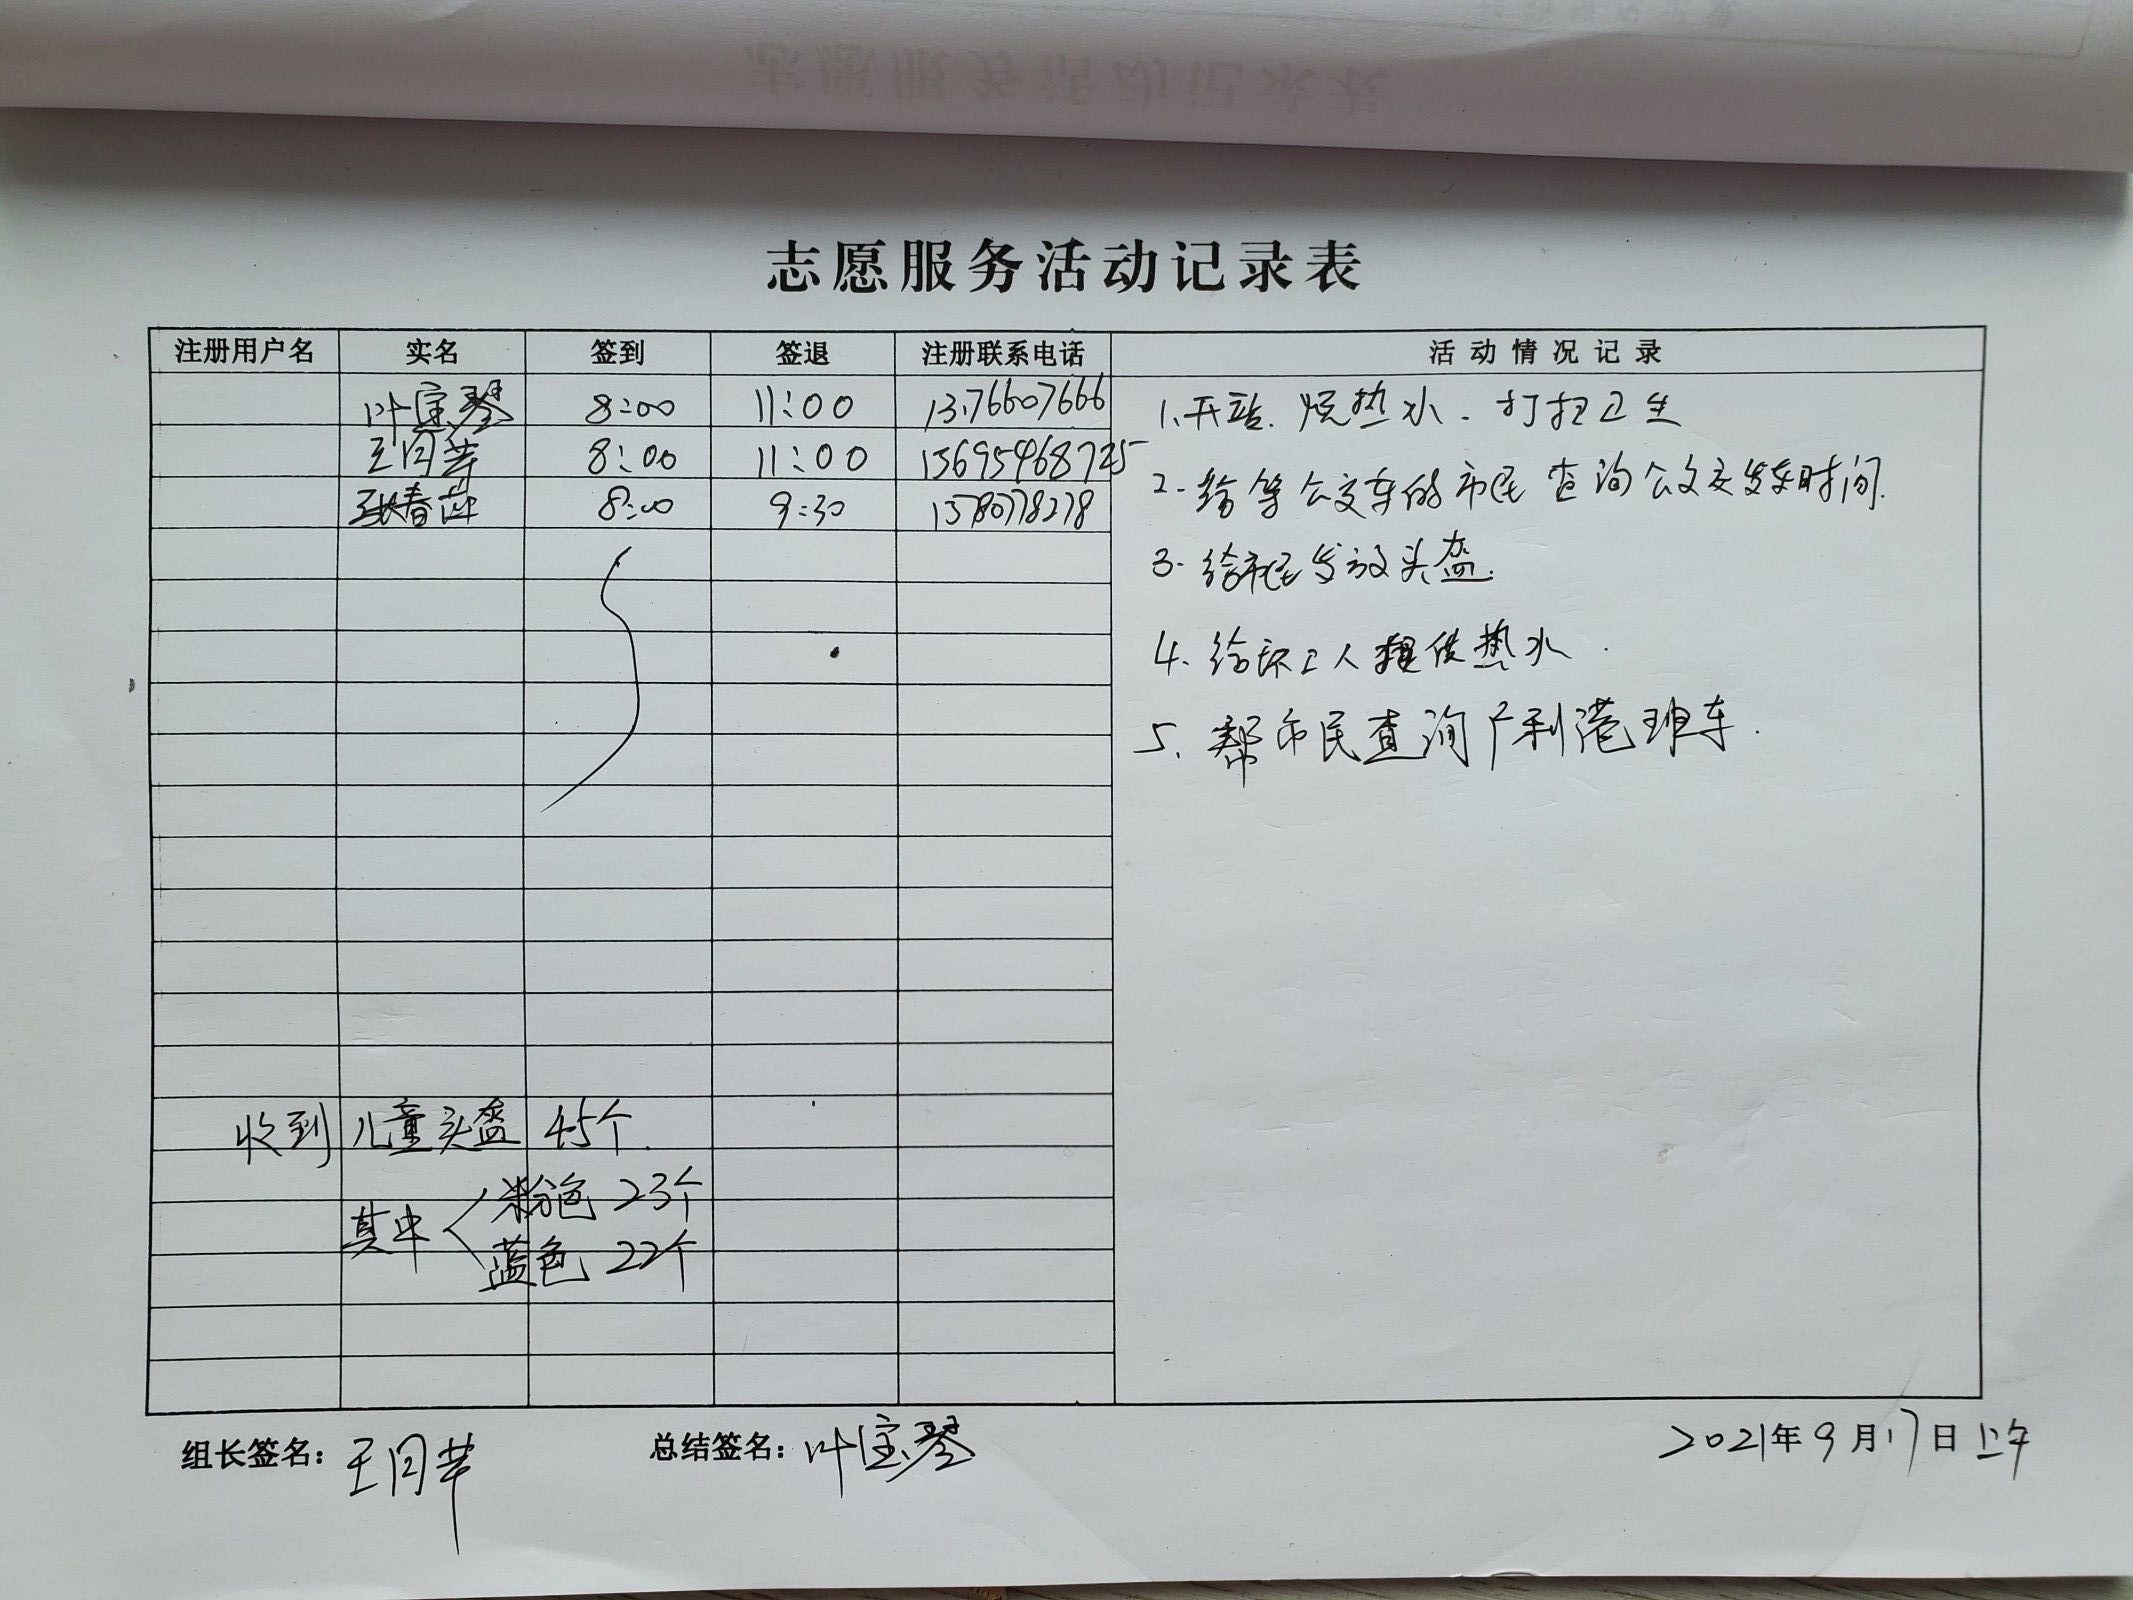 志愿服务活动记录表
注册用户名 实名 签到 签退 注册联系电话 活动情况记录
叶宝琴 8:00 11:00 13176607666
王同芊 8:00 11:00 13695468725
张春萍 8:00 9:30
1.开站.烧热水.打扫卫生
2.给等公交车的市民查询公交发车时间.
3.给市民发放头盔.
4.给环卫工人提供热水.
5.帮市民查询广利港班车.
收到儿童头盔45个.
其中 粉色23个
蓝色22个
组长签名：王同芊 总结签名：叶宝琴 2021年9月17日上午